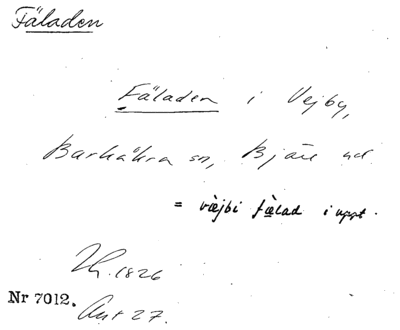 Fäladen
Fäladen i Vejby,
Barkåkra sn, Bjäre hd.
= væjbi fælad i uppt.
Th. 1826
Nr 7012.
Ant 27.